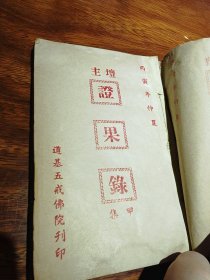 丙寅年仲夏
壇主
證果錄
甲集
道基五戒佛院刊印